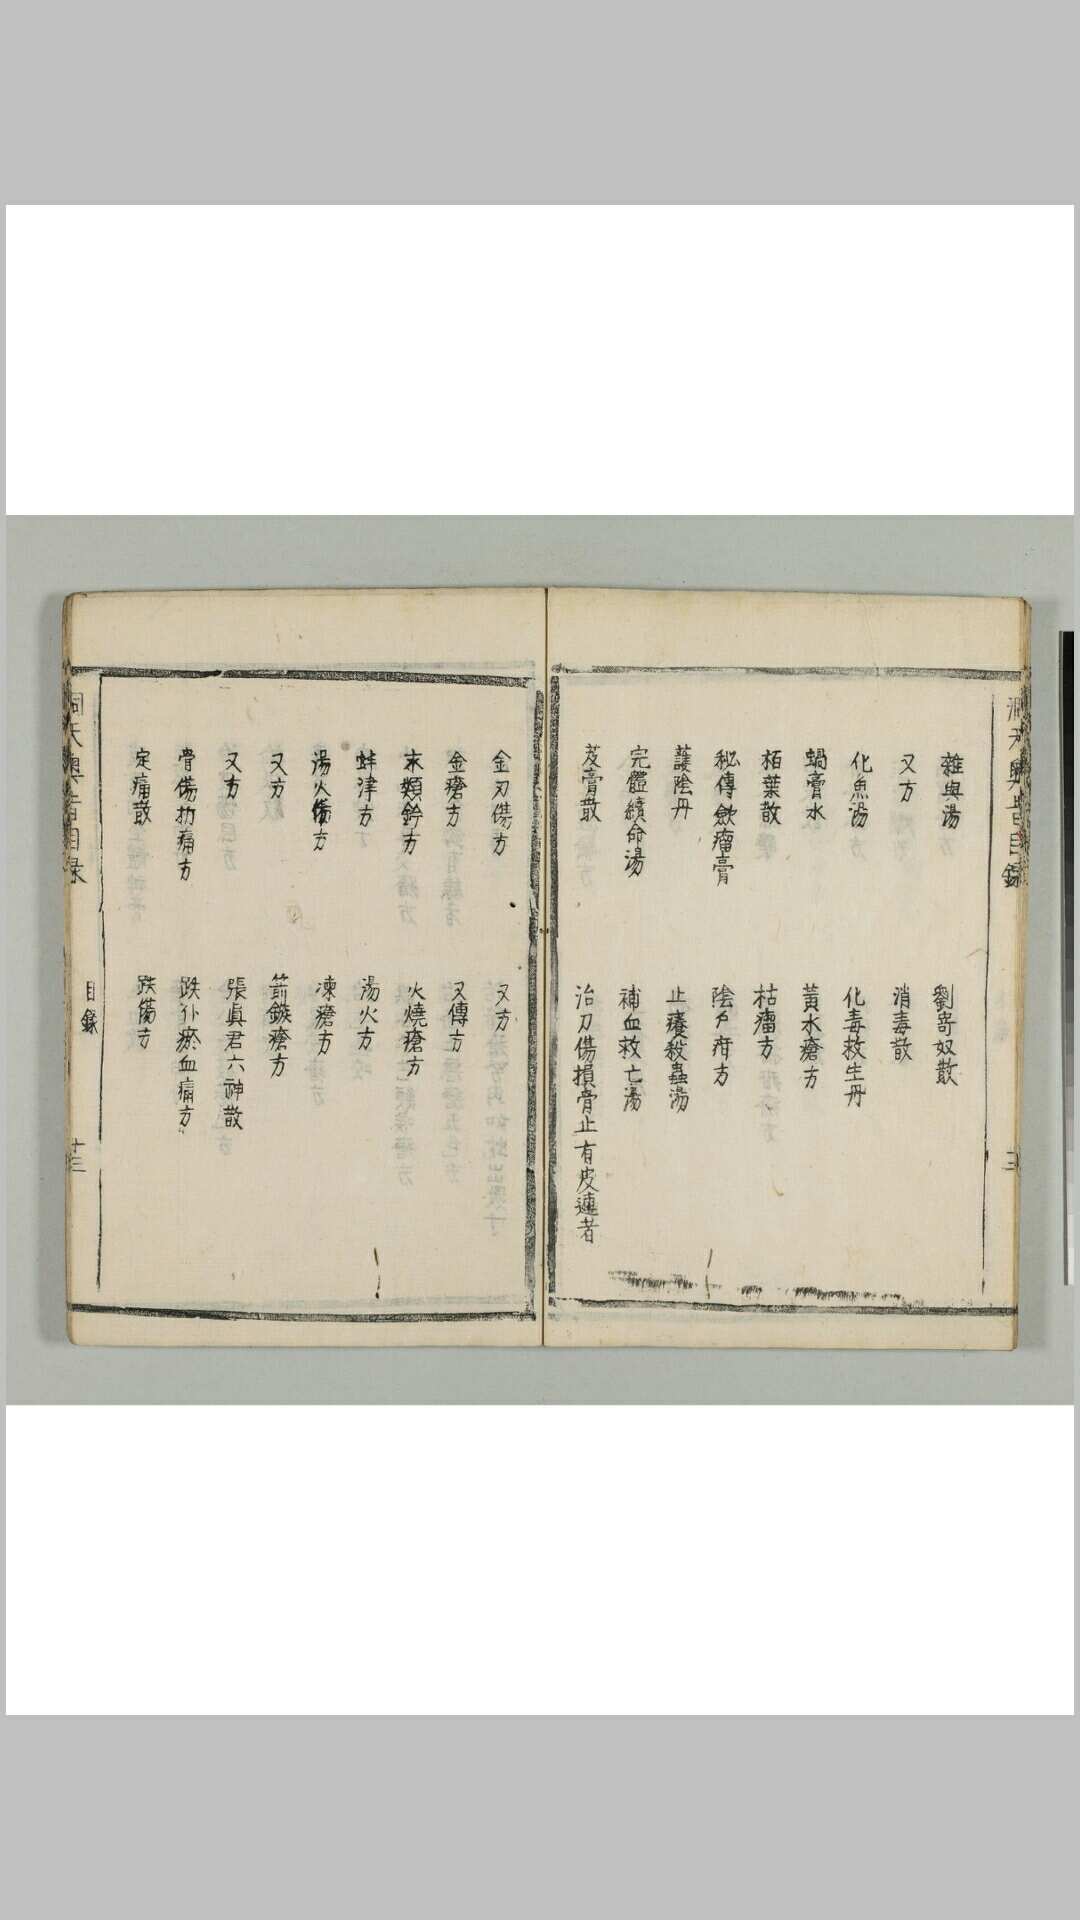 洞天奧旨目錄
雜與湯
劉寄奴散
又方
消毒散
化魚湯
化毒救生丹
蝸膏水
黃水瘡方
栢葉散
枯瘤方
秘傳歛瘤膏
陰戶疳方
護陰丹
止癢殺蟲湯
完體續命湯
補血救亡湯
芨膏散
治刀傷損骨止有皮連者
金刃傷方
又方
金瘡方
又傳方
末類鈐方
火燒瘡方
蚌津方
湯火方
湯火傷方
凍瘡方
又方
箭鏃瘡方
又方
張眞君六神散
骨傷扐痛方
跌仆瘀血痛方
定痛散
跌傷方
洞天奧旨目錄
目錄
十三